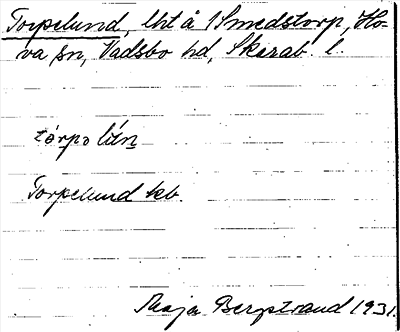 Torpelund, lht å 1 Smedstorp, Ho-
va sn, Vadsbo hd, Skarab. l.
tórpo lún
Torpelund kb.
Maja Bergstrand 1931.